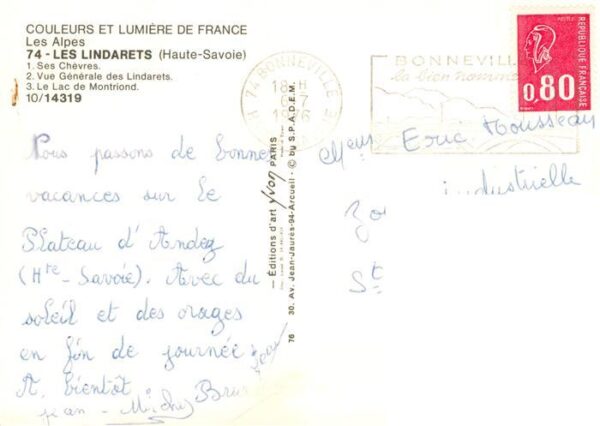 COULEURS ET LUMIÈRE DE FRANCE
Les Alpes
74 - LES LINDARETS (Haute-Savoie)
1. Ses Chèvres.
2. Vue Générale des Lindarets.
3. Le Lac de Montriond.
10/14319
Nous passons de bonnes
vacances sur le
Plateau d'Andez
(Hte-Savoie). Avec du
soleil et des orages
en fin de journée.
A bientôt
Jean-Michel
— Éditions d'art yvon PARIS
30, Av. Jean-Jaurès-94-Arcueil - © by S.P.A.D.E.M.
76
74 BONNEVILLE
18 H
7
1976
BONNEVILLE
la bien nommée
POSTES
RÉPUBLIQUE FRANÇAISE
0,80
Eric Mousseau
industrielle
St